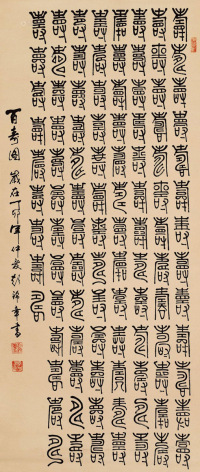 壽壽壽壽壽壽壽壽壽壽壽壽壽
壽壽壽壽壽壽壽壽壽壽壽壽壽
壽壽壽壽壽壽壽壽壽壽壽壽壽
壽壽壽壽壽壽壽壽壽壽壽壽壽
壽壽壽壽壽壽壽壽壽壽壽壽壽
壽壽壽壽壽壽壽壽壽壽壽壽壽
壽壽壽壽壽壽壽壽壽壽壽壽壽
壽壽壽壽壽壽壽壽壽
百壽圖 歲在丁卯年仲夏 書